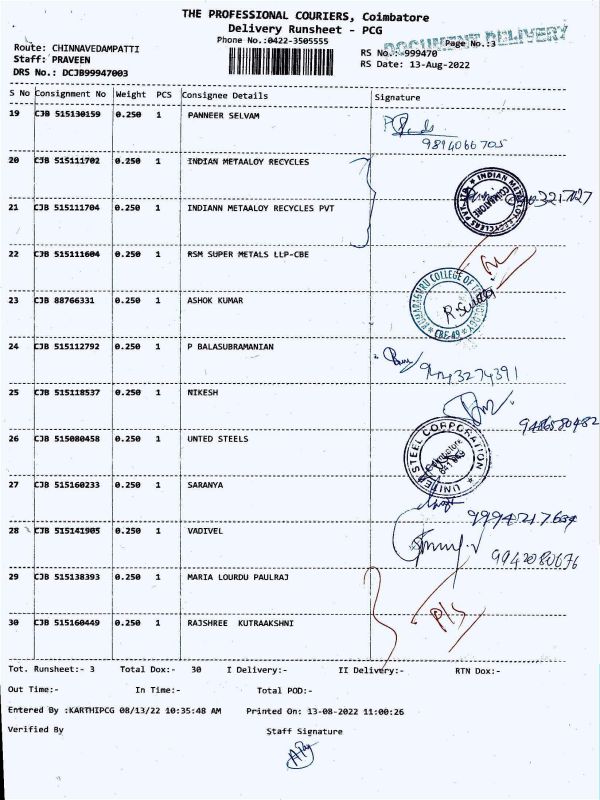 THE PROFESSIONAL COURIERS, Coimbatore
Delivery Runsheet - PCG
DOCUMENT DELIVERY
Phone No.:0422-3505555
Page No.:3
Route: CHINNAVEDAMPATTI
RS No.:-999470
Staff: PRAVEEN
RS Date: 13-Aug-2022
DRS No.: DCJB99947003
S No Consignment No Weight PCS Consignee Details Signature
19 CJB 515130159 0.250 1 PANNEER SELVAM
9894066705
20 CJB 515111702 0.250 1 INDIAN METAALOY RECYCLES
21 CJB 515111704 0.250 1 INDIANN METAALOY RECYCLES PVT
22 CJB 515111604 0.250 1 RSM SUPER METALS LLP-CBE
KUMARAGURU COLLEGE OF TECHNOLOGY
CBE-49
23 CJB 88766331 0.250 1 ASHOK KUMAR
24 CJB 515112792 0.250 1 P BALASUBRAMANIAN
25 CJB 515118537 0.250 1 NIKESH
9486580482
26 CJB 515080458 0.250 1 UNTED STEELS
UNITED STEEL CORPORATION
Coimbatore
27 CJB 515160233 0.250 1 SARANYA
9994217634
28 CJB 515141905 0.250 1 VADIVEL
9942080676
29 CJB 515138393 0.250 1 MARIA LOURDU PAULRAJ
P/S
30 CJB 515160449 0.250 1 RAJSHREE KUTRAAKSHNI
Tot. Runsheet:- 3 Total Dox:- 30 I Delivery:- II Delivery:- RTN Dox:-
Out Time:- In Time:- Total POD:-
Entered By :KARTHIPCG 08/13/22 10:35:48 AM Printed On: 13-08-2022 11:00:26
Verified By Staff Signature